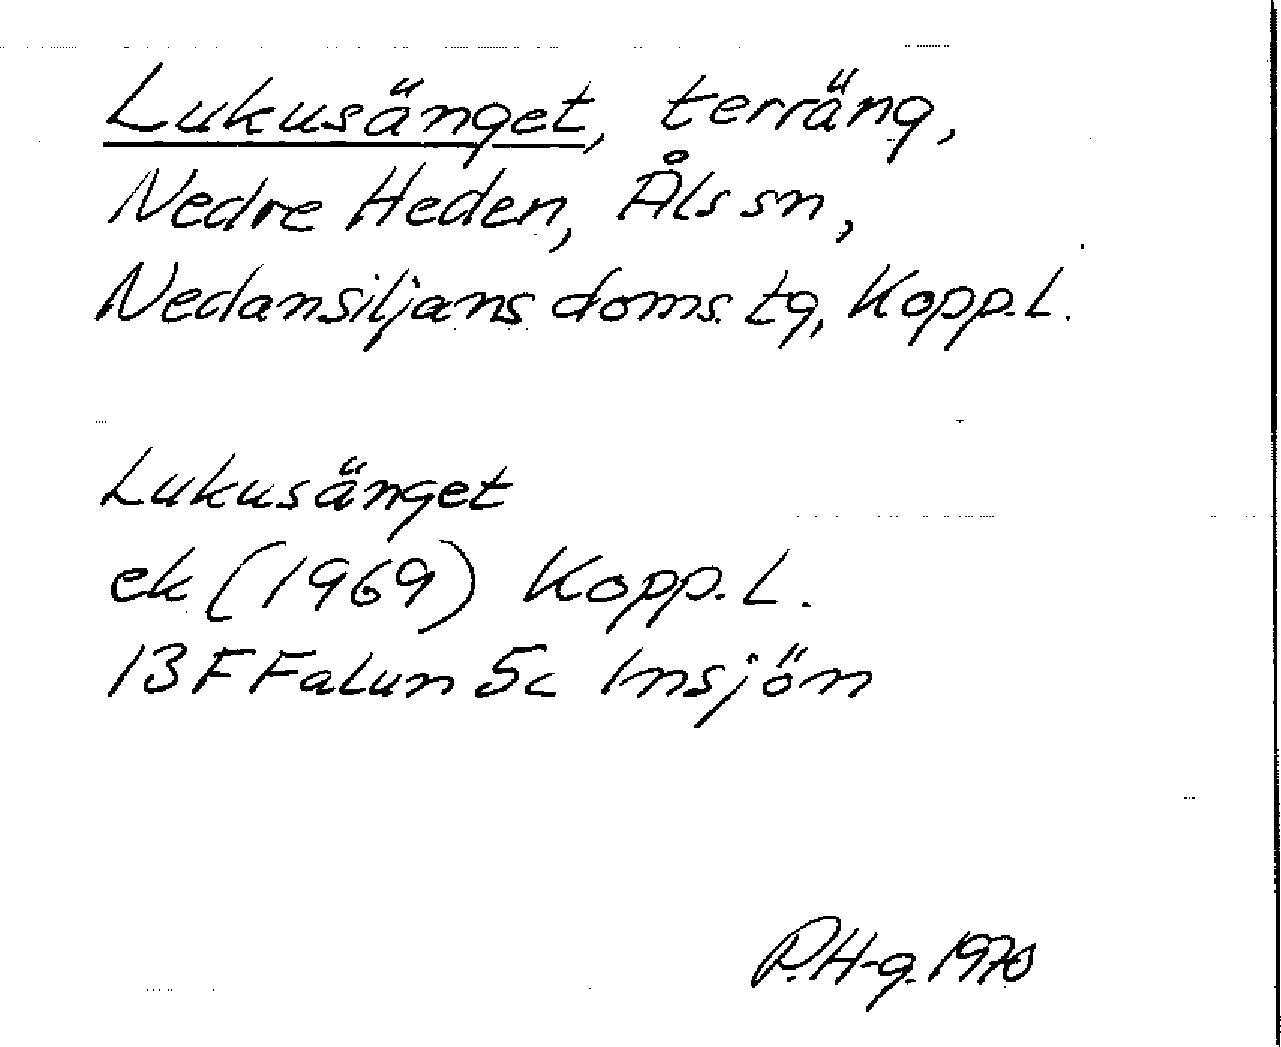 Lukusänget, terräng,
Nedre Heden, Åls sn,
Nedansiljans doms. tg, Kopp.L.
Lukusänget
ek (1969) Kopp.L.
13F Falun 5c Insjön
P.H-g. 1970